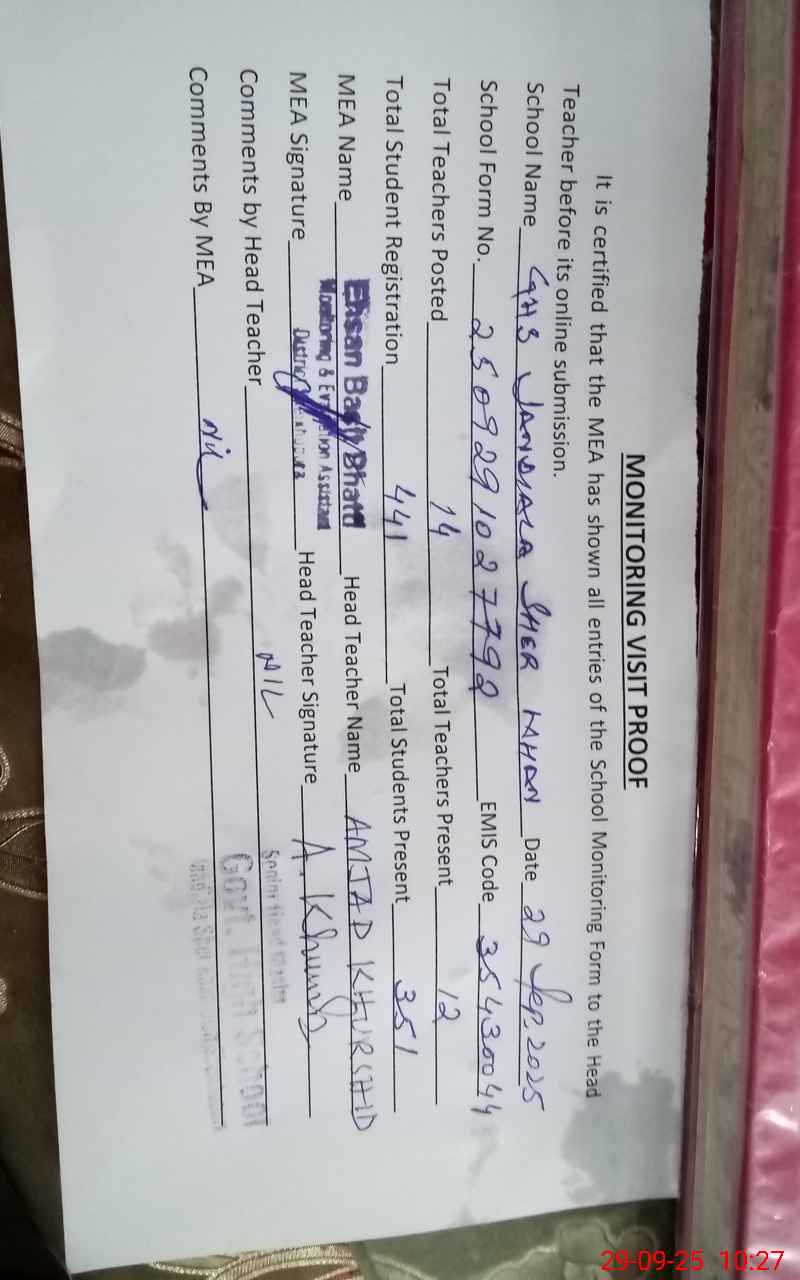 MONITORING VISIT PROOF
It is certified that the MEA has shown all entries of the School Monitoring Form to the Head
Teacher before its online submission.
School Name GHS JANDIALA SHER KHAN Date 29 Sep. 2025
School Form No. 25092910277792 EMIS Code 35430044
Total Teachers Posted 14 Total Teachers Present 12
Total Student Registration 441 Total Students Present 351
MEA Name Ehsan Bhatti Head Teacher Name AMJAD KHURSHID
Monitoring & Assistant
MEA Signature District Head Teacher Signature A. Khurshid
Comments by Head Teacher NIL
Senior Head Master
Govt. High School
Comments By MEA Nil
Jandiala Sher
29-09-25 10:27